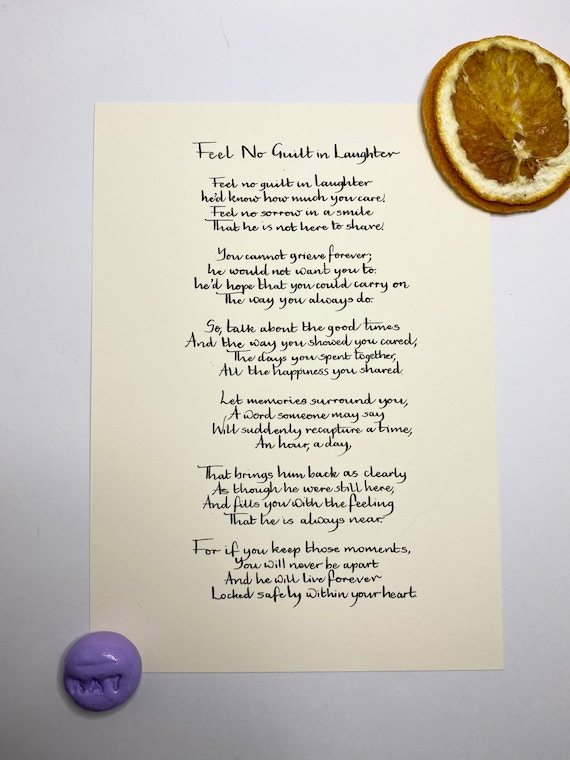 Feel No Guilt in Laughter
Feel no guilt in laughter
he'd know how much you care!
Feel no sorrow in a smile
That he is not here to share!
You cannot grieve forever;
he would not want you to.
he'd hope that you could carry on
The way you always do.
So, talk about the good times
And the way you showed you cared,
The days you spent together,
All the happiness you shared.
Let memories surround you,
A word someone may say
Will suddenly recapture a time,
An hour, a day,
That brings him back as clearly
As though he were still here,
And fills you with the feeling
That he is always near.
For if you keep those moments,
You will never be apart
And he will live forever
Locked safely within your heart.